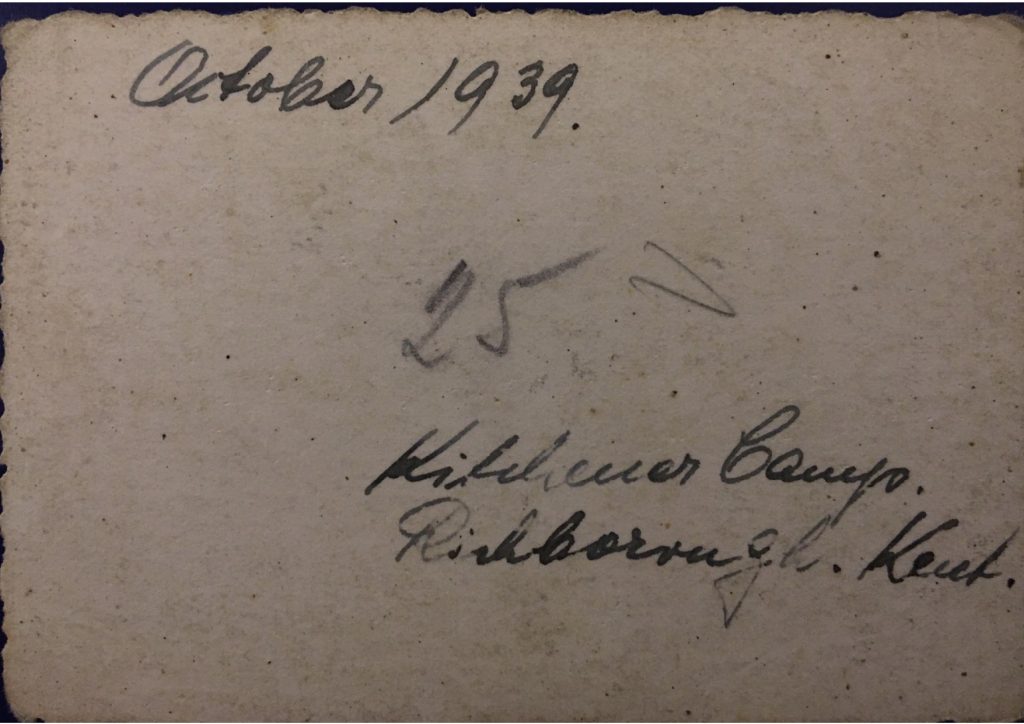 October 1939.
25
Kitchener Camp.
Richborough. Kent.